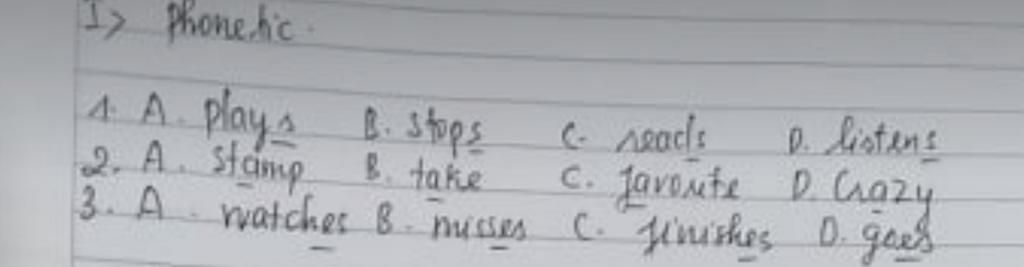 I> Phonetic.
1. A. plays B. stops C. reads D. listens
2. A. stamp B. take C. favoute D. Crazy
3. A. watches B. misses C. finishes D. goes